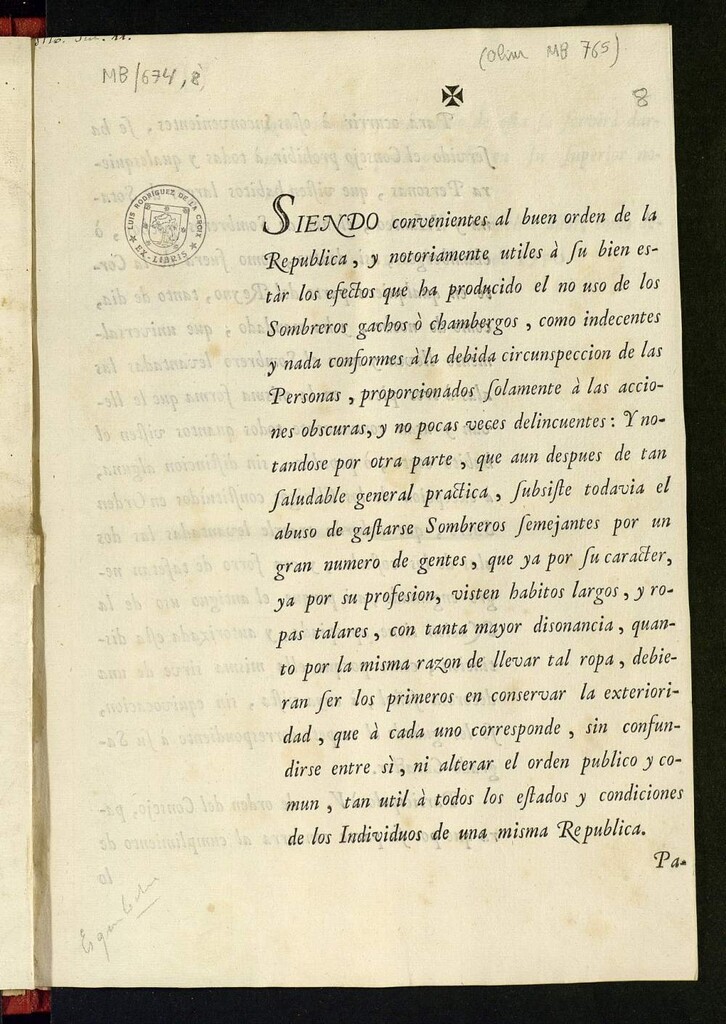 MB/674, 8
(Olim MB 765)
8
LUIS RODRIGUEZ DE LA CROIX
EX-LIBRIS
SIENDO convenientes al buen orden de la
Republica, y notoriamente utiles à ſu bien es-
tàr los efectos que ha producido el no uso de los
Sombreros gachos ò chambergos, como indecentes
y nada conformes à la debida circunspeccion de las
Personas, proporcionados ſolamente à las accio-
nes obscuras, y no pocas veces delincuentes: Y no-
tandose por otra parte, que aun despues de tan
ſaludable general practica, ſubsiſte todavia el
abuso de gaſtarse Sombreros ſemejantes por un
gran numero de gentes, que ya por ſu caracter,
ya por su profesion, visten habitos largos, y ro-
pas talares, con tanta mayor disonancia, quan-
to por la misma razon de llevar tal ropa, debie-
ran ſer los primeros en conservar la exteriori-
dad, que à cada uno corresponde, sin confun-
dirse entre sì, ni alterar el orden publico y co-
mun, tan util à todos los eſtados y condiciones
de los Individuos de una misma Republica.
Pa-